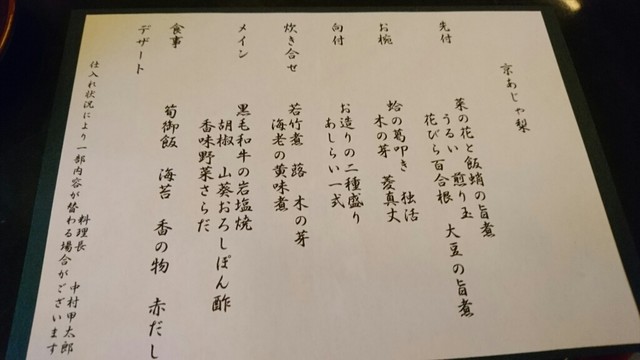 京あじゃ梨
先付
菜の花と飯蛸の旨煮
うるい 煎り玉 大豆の旨煮
花びら百合根
お椀
蛤の葛叩き 独活
木の芽 菱真丈
向付
お造りの二種盛り
あしらい一式
炊き合せ
若竹煮 蕗 木の芽
海老の黄味煮
メイン
黒毛和牛の岩塩焼
胡椒 山葵おろしぽん酢
香味野菜さらだ
食事
筍御飯 海苔 香の物 赤だし
デザート
料理長 中村甲太郎
仕入れ状況により一部内容が替わる場合がございます